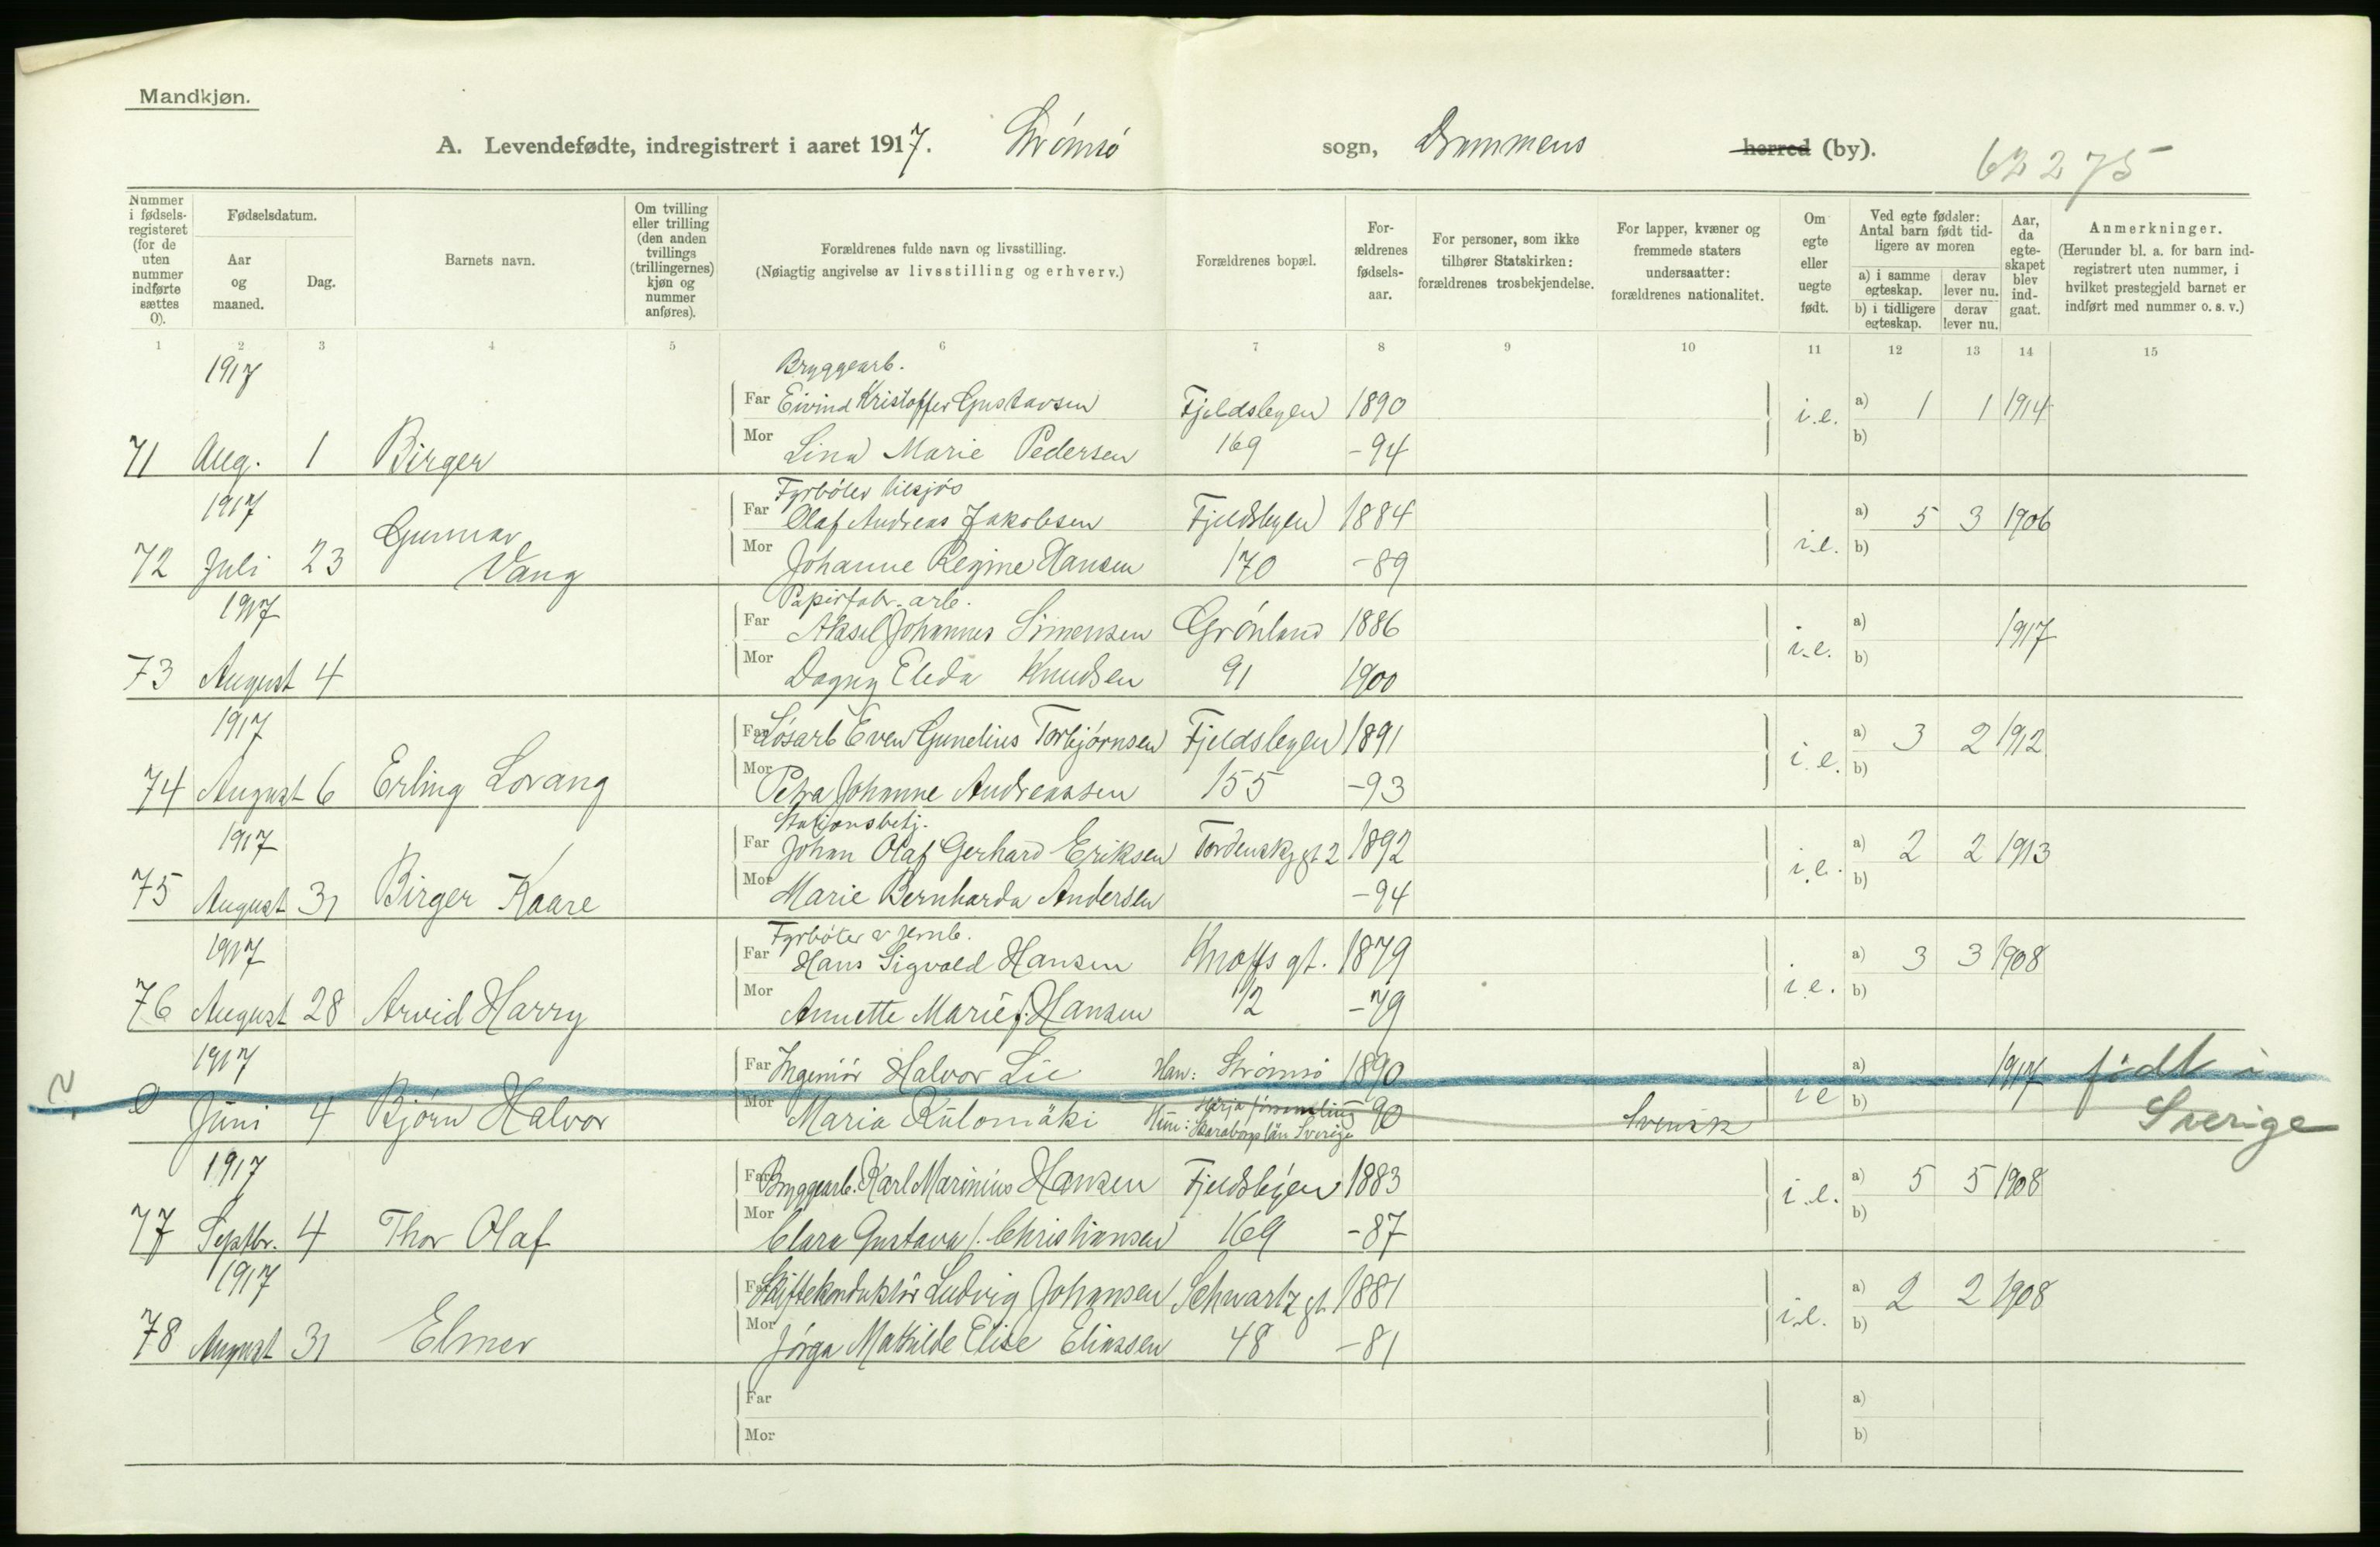 Mandkjøn.
A. Levendefødte, indregistrert i aaret 1917. Strömsö sogn, Drammens herred (by).
62275
Nummer i fødsels-registeret (for de uten nummer indførte sættes 0).
Fødselsdatum.
Aar og maaned.
Dag.
Barnets navn.
Om tvilling eller trilling (den anden tvillings (trillingernes) kjøn og nummer anføres).
Forældrenes fulde navn og livsstilling.
(Nøiagtig angivelse av livsstilling og erhverv.)
Forældrenes bopæl.
For-ældrenes fødsels-aar.
For personer, som ikke tilhører Statskirken: forældrenes trosbekjendelse.
For lapper, kvæner og fremmede staters undersaatter: forældrenes nationalitet.
Om egte eller uegte født.
Ved egte fødsler: Antal barn født tid-ligere av moren
a) i samme egteskap. derav lever nu.
b) i tidligere egteskap. derav lever nu.
Aar, da egte-skapet blev ind-gaat.
Anmerkninger.
(Herunder bl. a. for barn ind-registrert uten nummer, i hvilket prestegjeld barnet er indført med nummer o. s. v.)
1 2 3 4 5 6 7 8 9 10 11 12 13 14 15
1917 Bryggearb.
Far Eivind Kristoffer Gustavsen Fjeldsbyen 1890 i.e. a) 1 1 1914
71 Aug. 1 Birger Mor Lina Marie Pedersen 169 -94 b)
1917 Fyrböter tilsjös
Far Olaf Andreas Jakobsen Fjeldsbyen 1884 a) 5 3 1906
72 Juli 23 Gunnar Vang Mor Johanne Regine Hansen 170 -89 i.e. b)
1917 Papirfabr. arb.
Far Aksel Johannes Simensen Grönland 1886 a) 1917
73 August 4 Mor Dagny Eleda Knudsen 91 1900 i.e. b)
1917 Far Lösarb Even Gunelius Torbjörnsen Fjeldsbyen 1891 a) 3 2 1912
74 August 6 Erling Lorang Mor Petra Johanne Andreassen 155 -93 i.e. b)
1917 Stationsbetj.
Far Johan Olaf Gerhard Eriksen Tordenskj gt 2 1892 a) 2 2 1913
75 August 31 Birger Kaare Mor Marie Bernharda Andersen -94 i.e. b)
1917 Fyrböter v jernb.
Far Hans Sigvald Hansen Knoffs gt. 1879 a) 3 3 1908
76 August 28 Arvid Harry Mor Annette Marie f. Hansen 12 -79 i.e. b)
1917 Far Ingeniör Halvor Lie Han: Strömsö 1890 a) 1917 födt i
0 Juni 4 Björn Halvor Mor Maria Hun: Skaraborgs län Sverige 90 Svensk i e b) Sverige
1917 Far Bryggearb. Karl Marinius Hansen Fjeldsbyen 1883 a) 5 5 1908
77 Septbr. 4 Thor Olaf Mor Clara Gustava f. Christiansen 169 -87 i.e. b)
1917 Far Skiftekonduktör Ludvig Johansen Schwartz gt. 1881 a) 2 2 1908
78 August 31 Elmer Mor Jörga Mathilde Elise Eliassen 48 -81 i.e. b)
Far a)
Mor b)